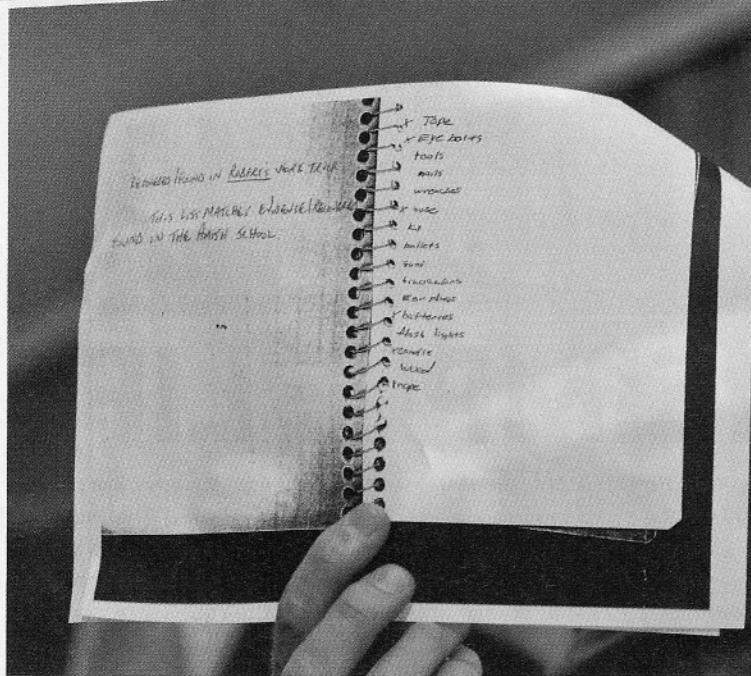 RECOVERED/FOUND IN ROBERT'S WORK TRUCK
THIS LIST MATCHES EVIDENCE/RECOVERED
FOUND IN THE AMISH SCHOOL
x Tape
x Eye bolts
tools
nails
wrenches
x hose
KY
bullets
guns
binoculars
Ear plugs
x batteries
flash lights
candle
wood